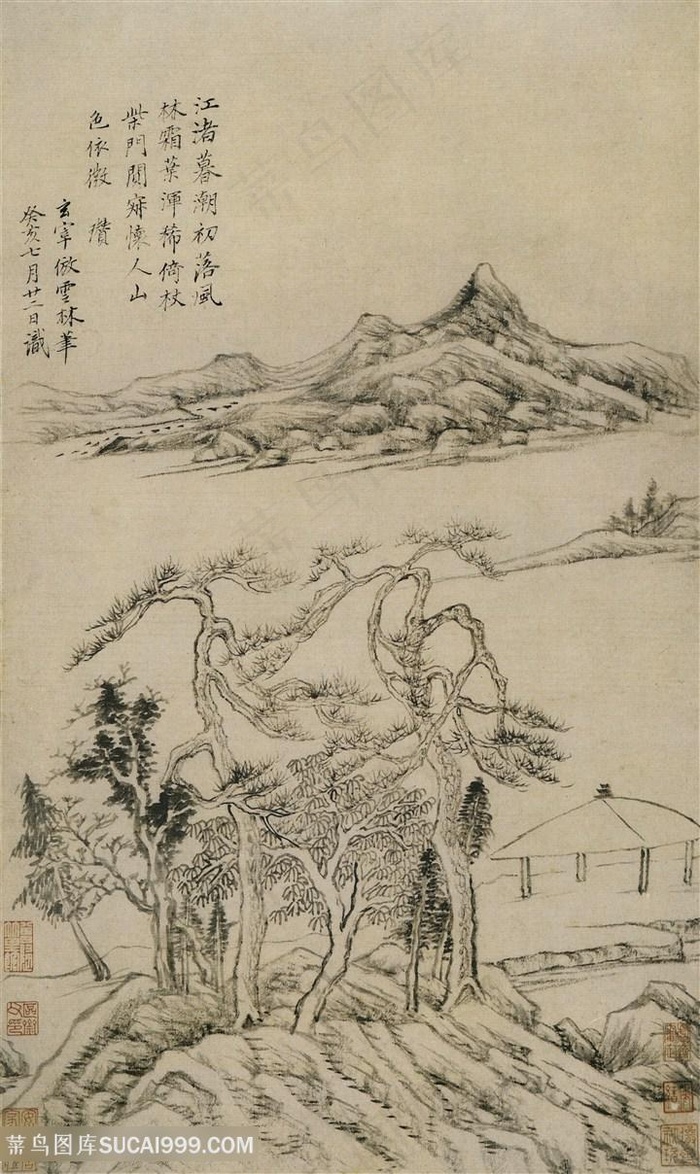 江渚暮潮初落風
林霜葉渾稀倚杖
柴門闃寂懷人山
色依微 瓚
玄宰倣雲林筆
癸亥七月廿二日識
菜鸟图库
菜鸟图库SUCAI999.COM